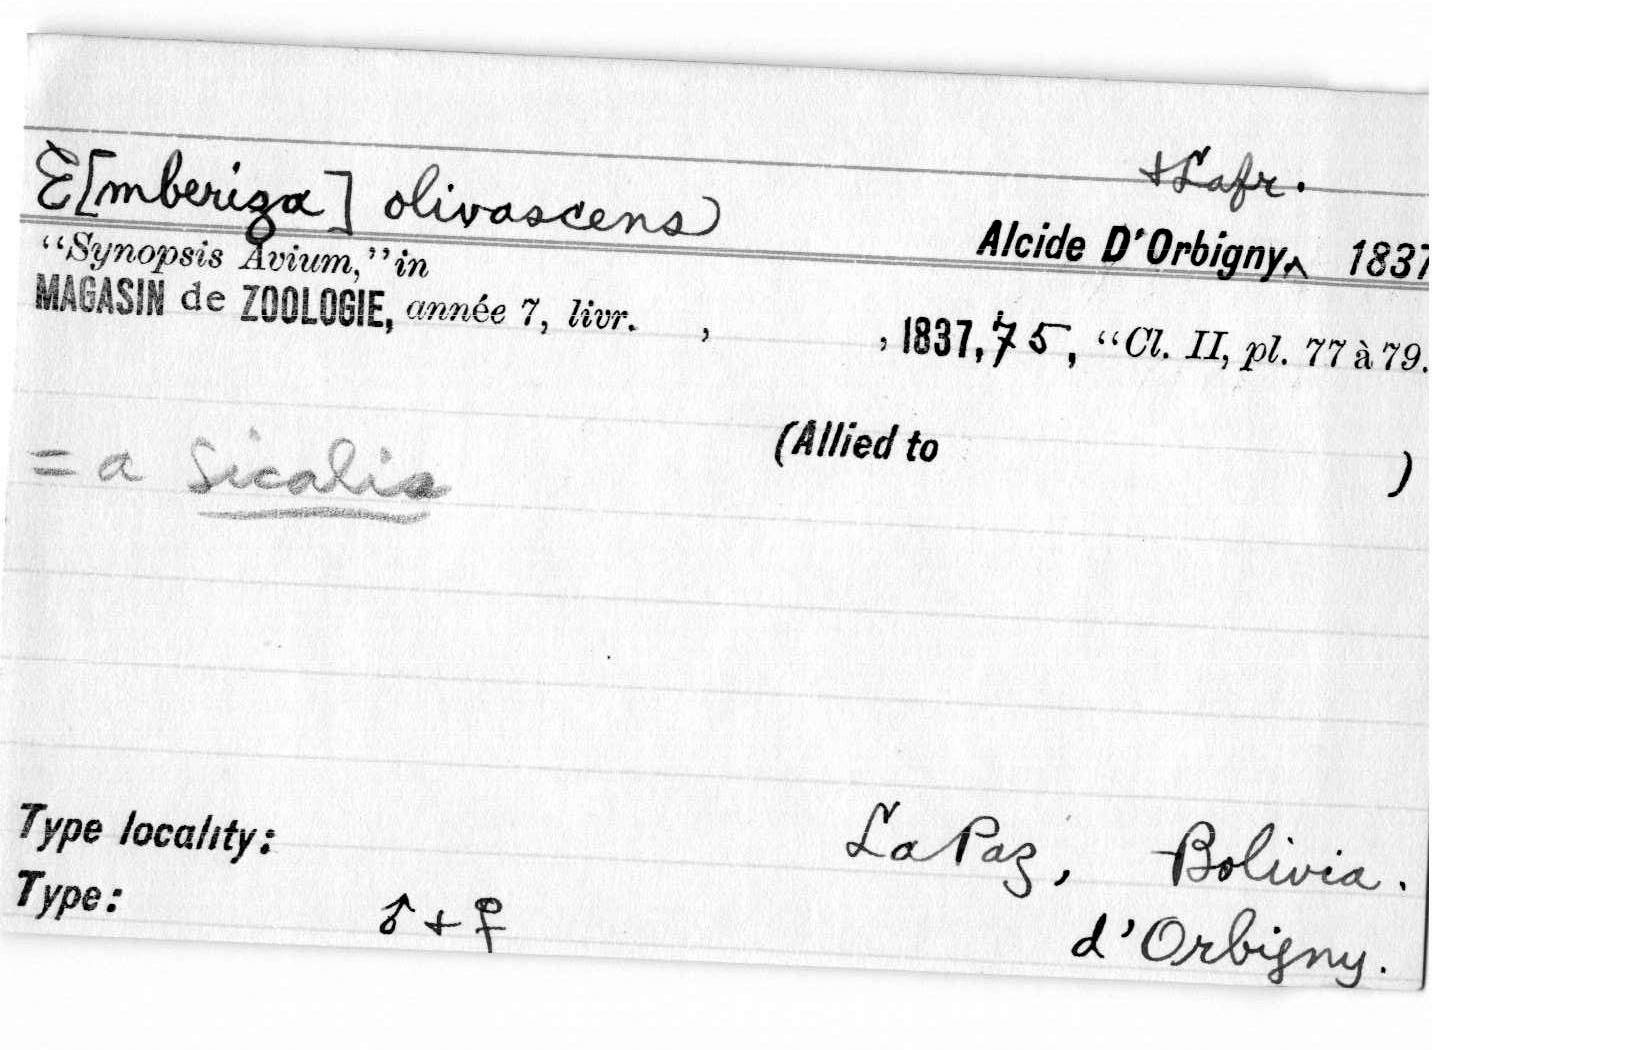 + Lafr.
E[mberiza] olivascens
Alcide D'Orbigny, ^ 1837
"Synopsis Avium," in
MAGASIN de ZOOLOGIE, année 7, livr. , , 1837, 75, "Cl. II, pl. 77 à 79.
(Allied to )
= a Sicalis
Type locality: La Paz, Bolivia.
Type: ♂ + ♀ d'Orbigny.